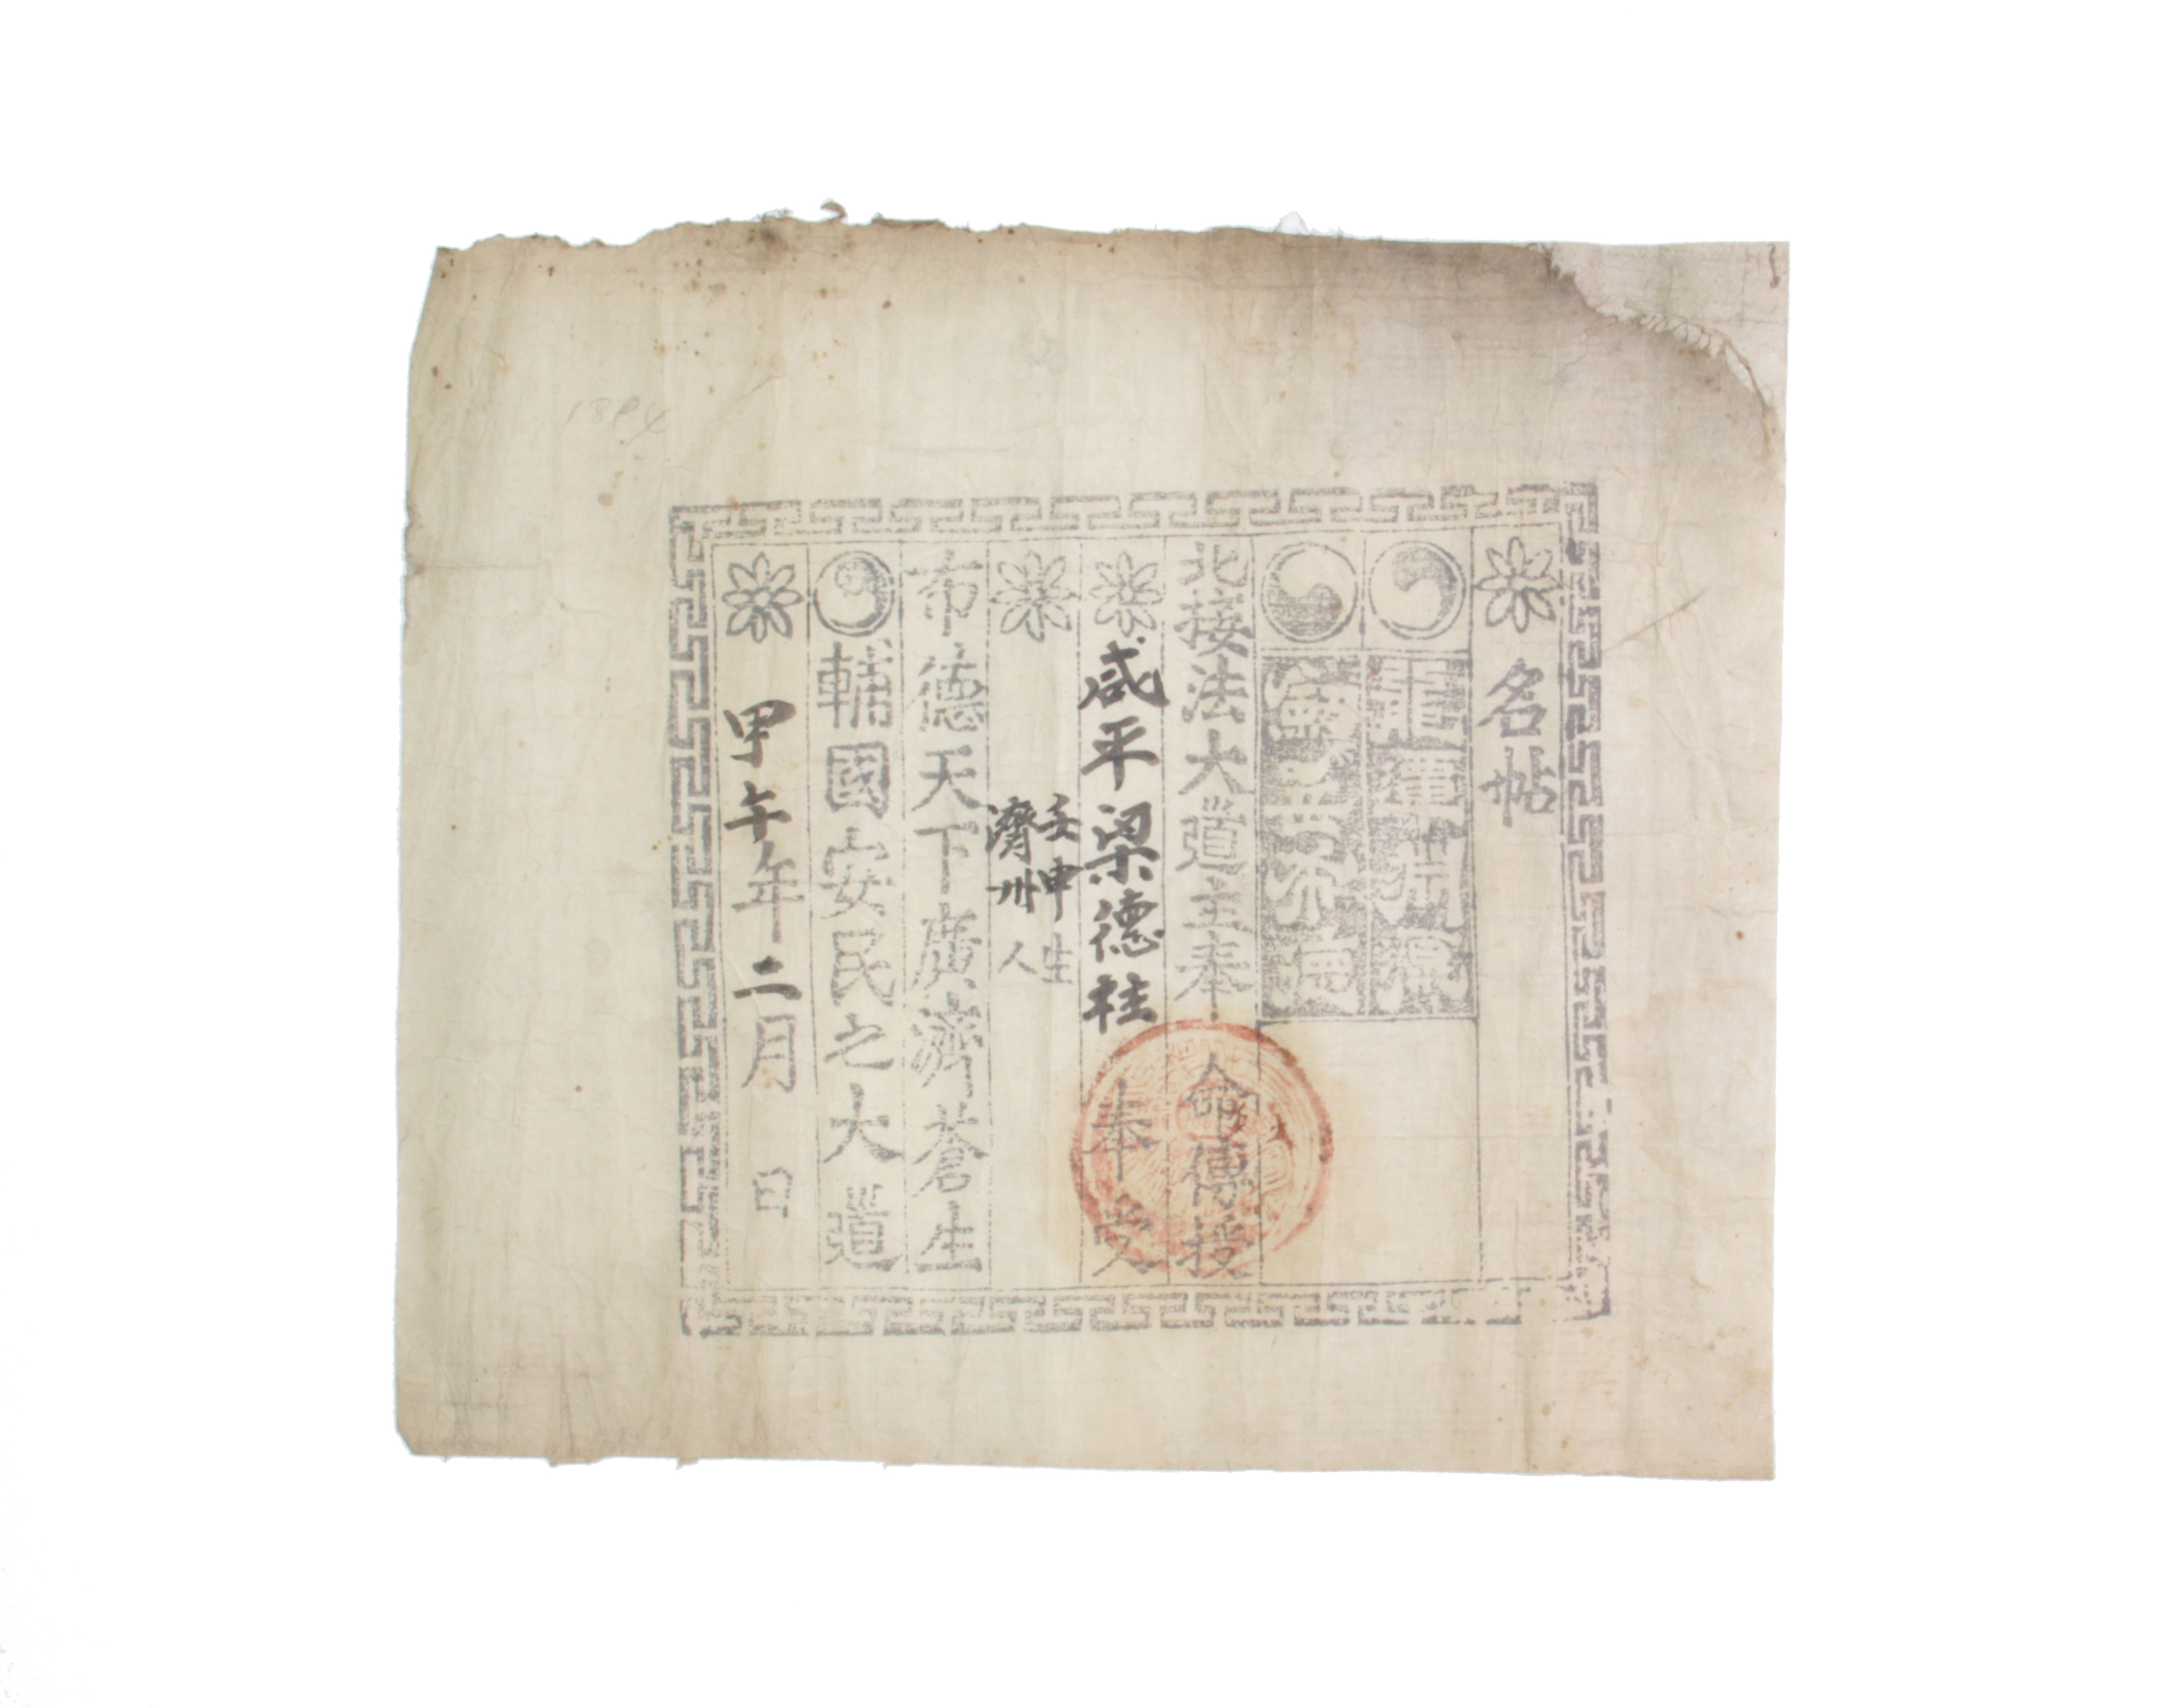 名帖
龍潭
無 不德
北接法大道主奉 命傳授
咸平梁德柱 奉受
壬申生
濟州人
布德天下廣濟蒼生
輔國安民之大道
甲午年二月 日
1894